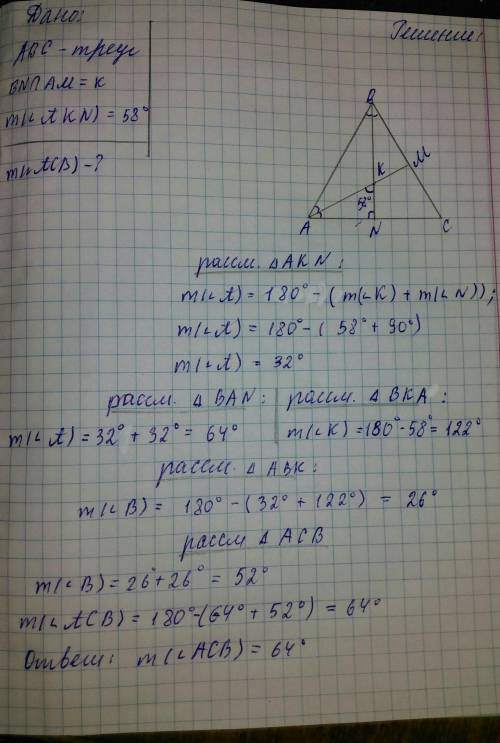 Дано:
Решение:
ABC - треуг
BN∩AM = K
m(∟AKN) = 58°
m(∟ACB) - ?
B
M
K
58°
A
N
C
рассм. ΔAKN:
m(∟A) = 180° - (m(∟K) + m(∟N));
m(∟A) = 180° - (58° + 90°)
m(∟A) = 32°
рассм. Δ BAN: рассм. Δ BKA:
m(∟A) = 32° + 32° = 64° m(∟K) = 180° - 58° = 122°
рассм. Δ ABK:
m(∟B) = 180° - (32° + 122°) = 26°
рассм Δ ACB
m(∟B) = 26° + 26° = 52°
m(∟ACB) = 180° - (64° + 52°) = 64°
Ответ: m(∟ACB) = 64°